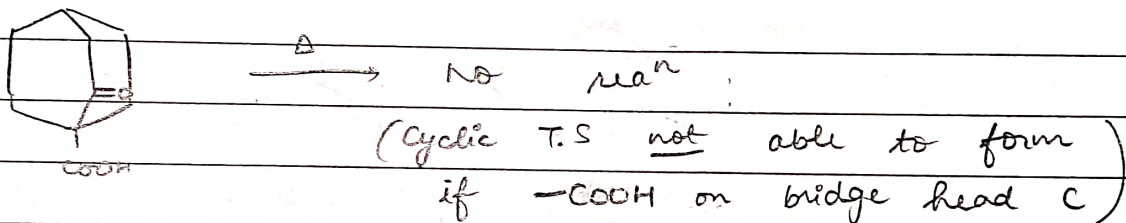 Δ
=O
No reaⁿ.
(Cyclic T.S not able to form
COOH
if —COOH on bridge head C)